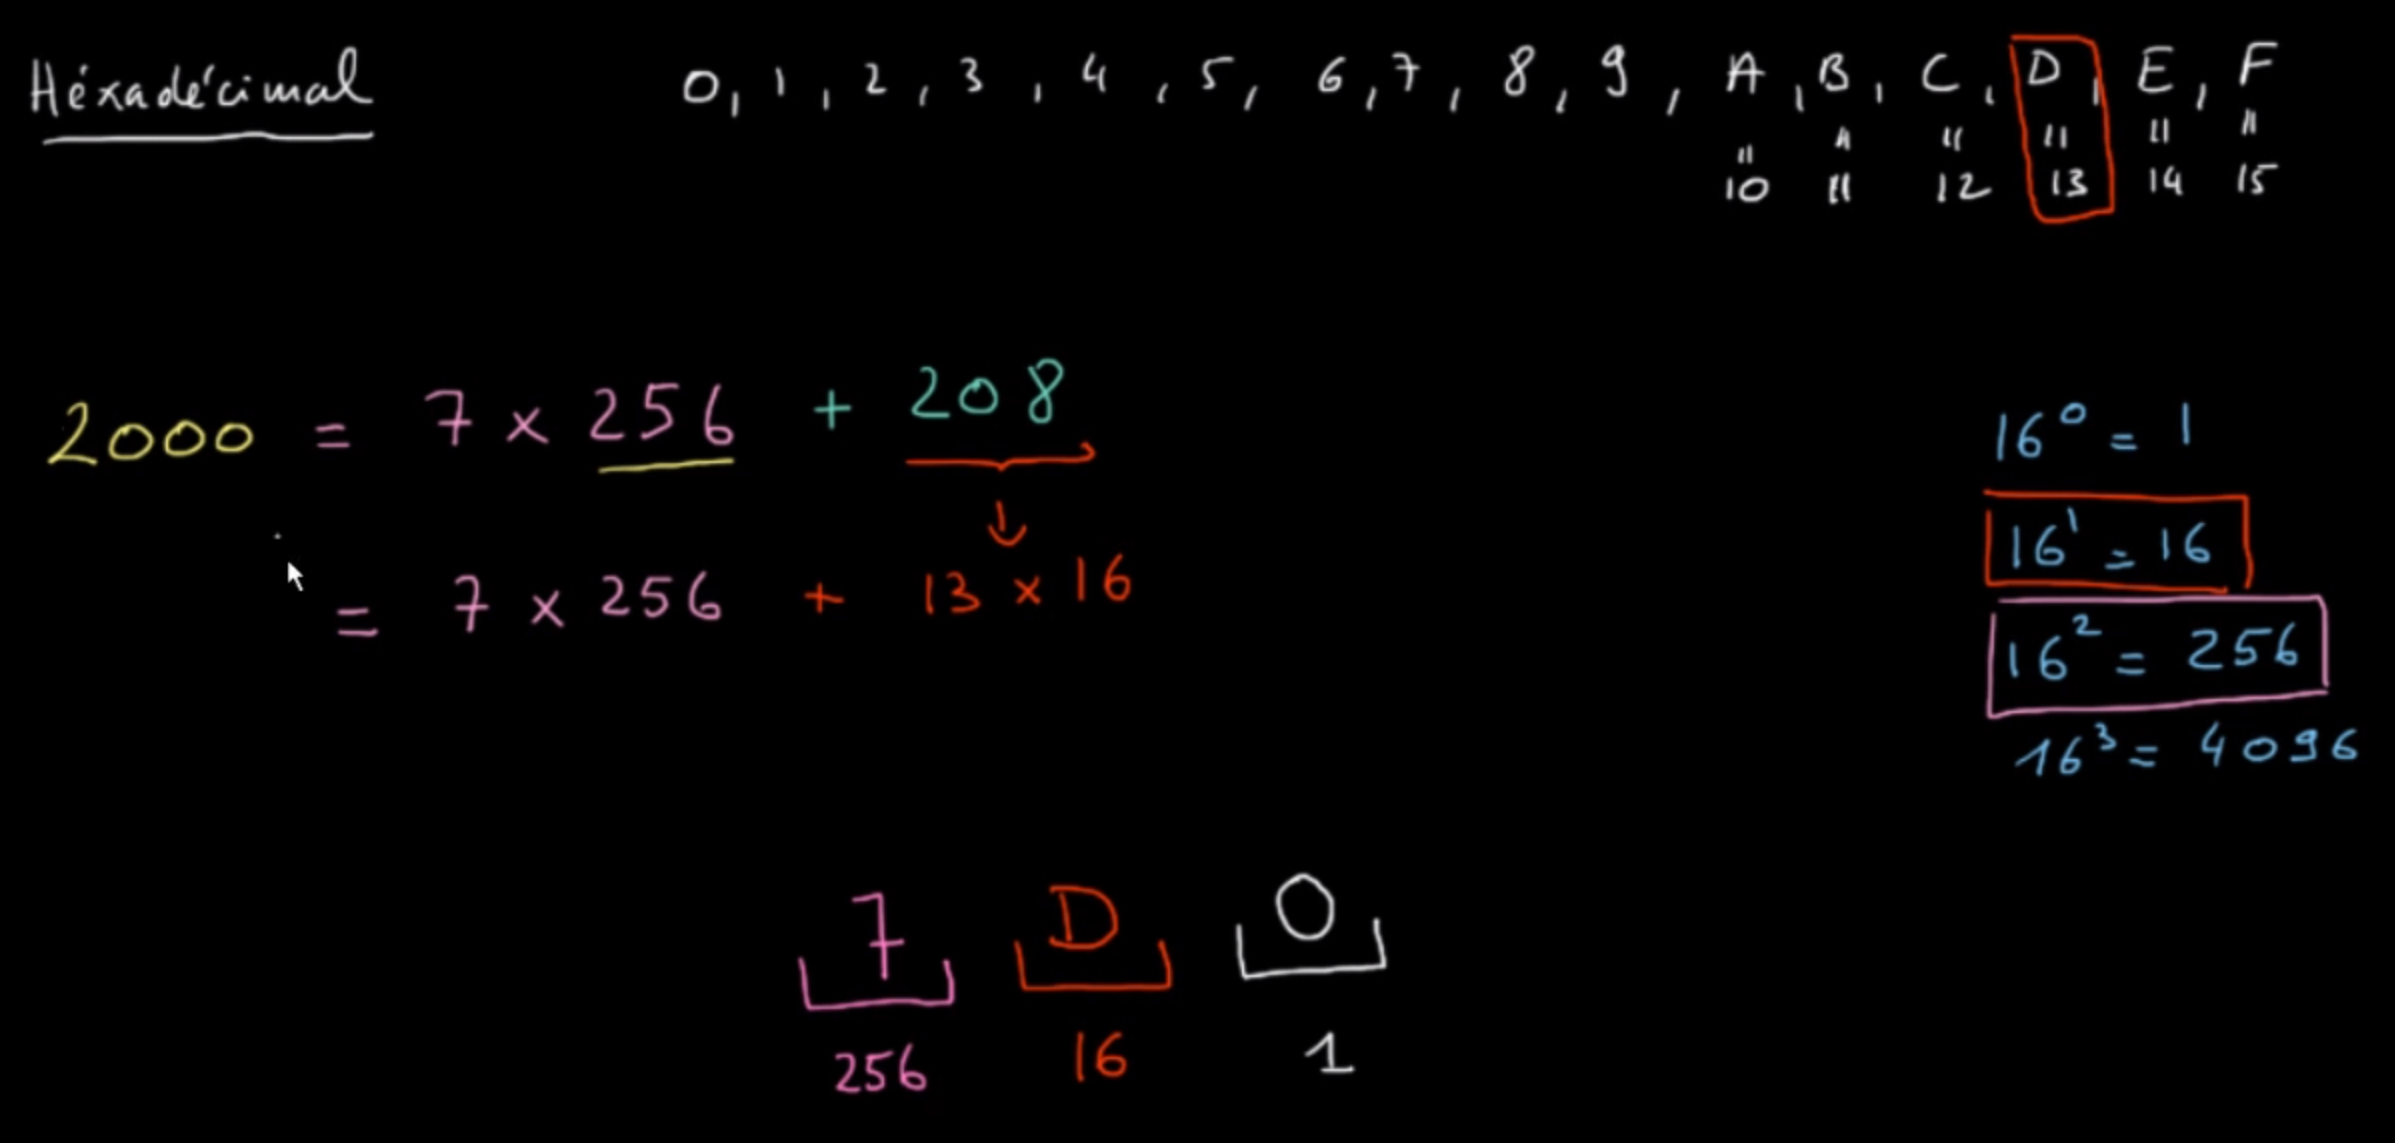 Héxadécimal 0, 1, 2, 3, 4, 5, 6, 7, 8, 9, A, B, C, D, E, F
" " " " " "
10 11 12 13 14 15
2000 = 7 x 256 + 208
= 7 x 256 + 13 x 16
16⁰ = 1
16¹ = 16
16² = 256
16³ = 4096
7 D 0
256 16 1